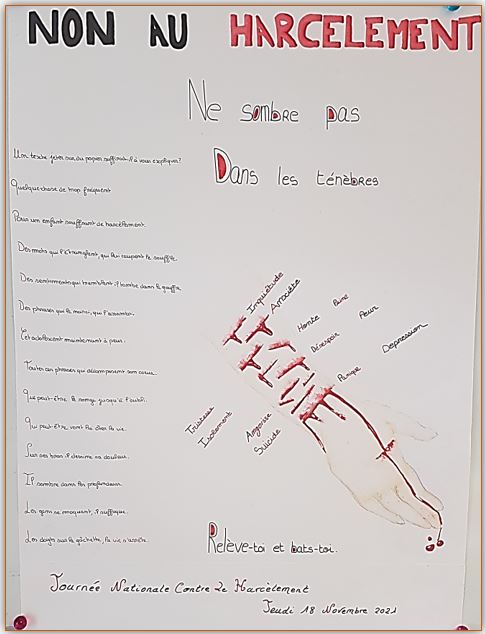 NON AU HARCELEMENT
Ne sombre pas
Dans les ténèbres
Un texte jeter sur du papier suffirait-il à vous expliquer?
Quelque chose de trop fréquent
Pour un enfant souffrant de harcèlement.
Des mots qui l'étranglent, qui lui coupent le souffle.
Des sentiments qui il tombe dans le gouffre
Des phrases qui qui
Cet adolescent maintenant à peur.
Toutes ces phrases décomposent son cœur.
Que peut-être le ronge jusqu'à l'oubli.
Qui peut-être vont lui ôter la vie.
Sur ses bras il dessine sa douleur.
Il sombre dans les profondeurs.
Les gens se moquent, il suffoque.
Les doigts sur la gâchette, la vie s'arrête.
Inquiétude
Anxiété
Honte
Peine
Peur
Désespoir
Depression
Panique
Tristesse
Isolement
Angoisse
Suicide
Relève-toi et bats-toi.
Journée Nationale Contre Le Harcèlement
Jeudi 18 Novembre 2021